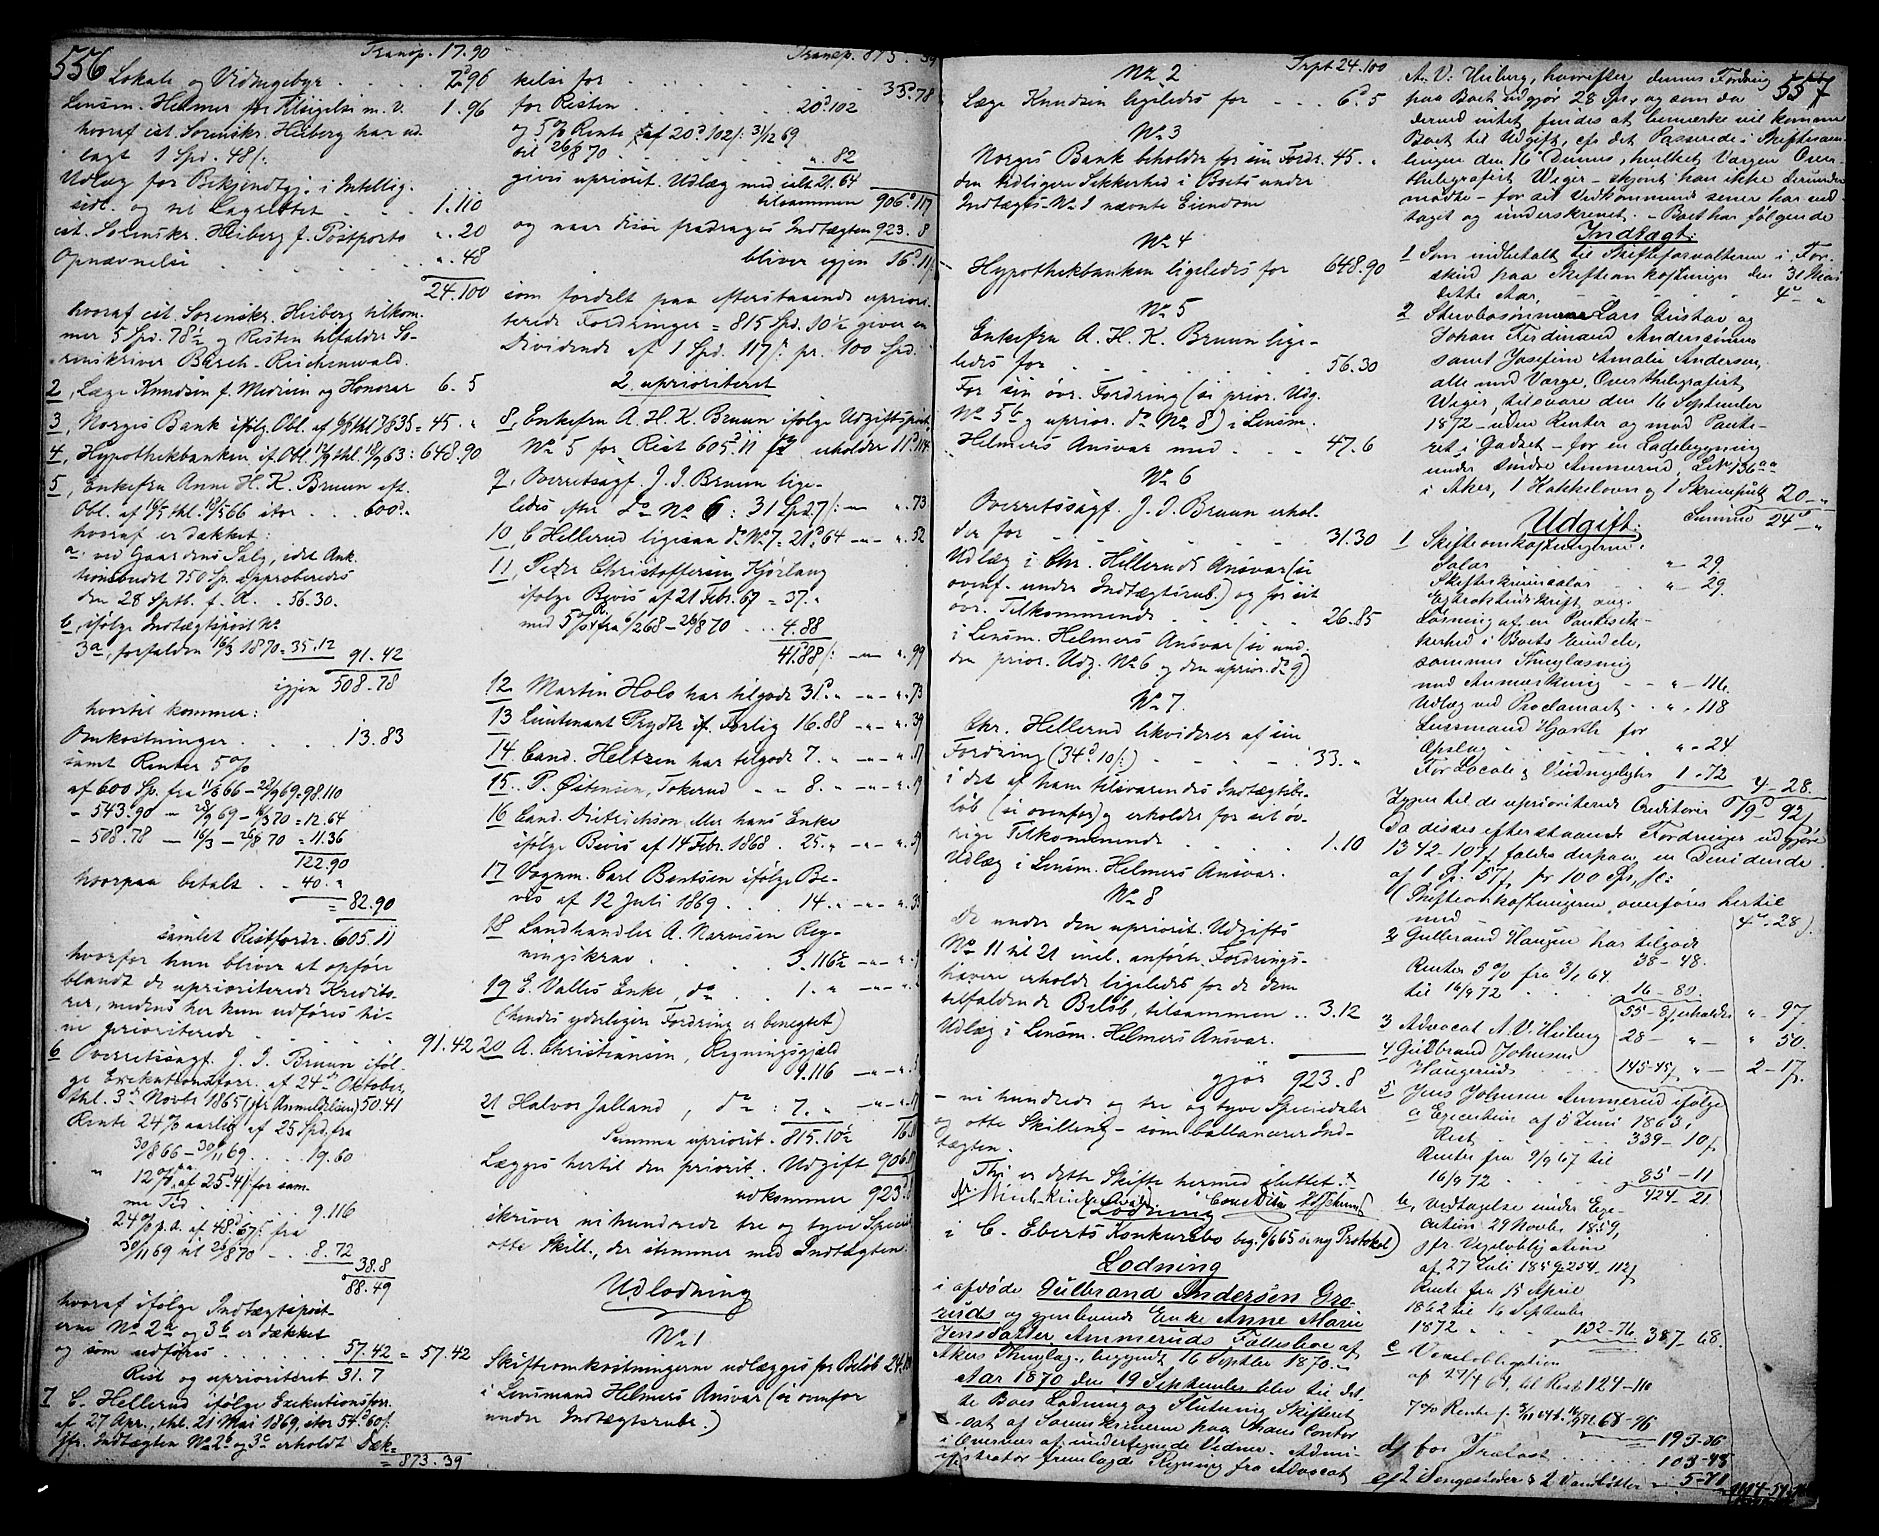 556
Transp. 17.90
Lokale og Vidnegebyr . . . . 2.96
Lensm. Helmer for Tilsigelse m. v. 1.96
hvoraf cst. Sorenskr. Heiberg har ud-
lagt 1 Spd. 48 /:
Udlæg for Bekjendtgj. i Intellig.
sedl. og til Lagrettet . . . 1.110
cst. Sorenskr. Heiberg f. Postporto ". 20
Opnævnelse . . . ". 48
24.100
hvoraf cst. Sorenskr. Heiberg tilkom-
mer 5 Spd. 78½ og Resten tilfalder So-
renskriver Barch-Reichenwald.
2, Læge Knudsen f. Medicin og Honorar 6. 5
3, Norges Bank ifølg Obl. af 1835 = 45. "
4, Hypothekbanken if. Obl. 63: 648.90
5, Enkefru Anne H. K. Bruun eft.
Obl. af thl. 66 stor . . . 600
hvoraf er dækket:
a. ved Gaardens Salg, idet Auk-
tionsbudet 750 Sp. approberedes
den 28 Sptb. f. A. . 56.30.
b, ifølge Indtægtspost No
3a, forfalden 16/3 1870 = 35.12 91.42
igjen 508.78
hvortil kommer:
Omkostninger . . . 13.83
samt Renter 5%
af 600 Sp. fra 11/8 66 – 28/9 69 = 98.110
- 543.90 – 28/9 69 – 16/3 70 = 12.64
- 508.78 – 16/3 – 26/8 70 = 11.36
122.90
hvorpaa betalt . . 40. "
= 82.90
samlet Restfordr. 605.11
hvorfor hun bliver at opføre
blandt de uprioriterede Kredito-
rer, medens her kun udføres hi-
ne prioriterede . . . 91.42
6 Overretssagf. J. J. Bruun iføl-
ge Exekutionsforr. af 24de Oktober,
thl. 3de Novbr 1865 (jfr Anmeldelsen) 50.41
Rente 24% aarlig af 25 Spd. fra
30/8 66 – 30/11 69 . . . 19.60
" 12% pa. af 25.41 for sam-
me Tid . . . 9.116
24% p.a. af 48.67 /: fra
30/11 69 til 26/8 70 . . 8.72
38.8
88.49
hvoraf ifølge Indtægtspost-
erne No 2a og 3b er dækket
og som udføres . . . 57.42 = 57.42
Rest og uprioriteret 31.7
7 C. Hellerud ifølge Exekutionsforr.
af 27 Apr., thl. 21 Mai 1869, stor 54.60 /:
jfr. Indtægten No 2b og 3c erholdt Dæk-
= 873.39
Transp. 873. 39
kelse for . . . 33.78
for Resten . . . 20.102
og 5% Rente af 20.102 /: 31/12 69
til 26/8 70 . . . ". 82
gives upriorit. Udlæg med ialt 21.64
tilsammen 906.117
og naar disse fradrages Indtægten 923. 8
bliver igjen 16.11
som fordelt paa efterstaaende uprior-
iterede Fordringer = 815 Spd. 10½ giver en
Dividende af 1 Spd. 117 /: pr. 100 Spd.
2. uprioriteret
8, Enkefru A. H. K. Bruun ifølge Udgiftspost
No 5 for Rest 605.11 erholder 11.114
9, Overretssagf. J. J. Bruun lige-
ledes efter do No 6: 31 Spd. 7 /: — ". 73
10, C Hellerud ligesaa do No 7 = 21.64 – " – ". 52
11, Peder Christoffersen Kjørlaug
ifølge Bevis af 21 Febr. 67 = 37. "
med 5% fra 6/2 68 – 26/8 70 . . . 4.88
41.88 /: – " – ". 99
12. Martin Holo har tilgode 31. " – " – ". 73
13 Lieutenant Prydtz if. Forlig 16.88 – " – ". 39
14. Cand. Heltzen har tilgode 7. " – " – ". 17
15. P. Østensen, Tokerud " " 8. " – " – ". 19
16 Cand. Dietrichson eller hans Enke
ifølge Bevis af 14 Febr. 1868 . 25. " – " – ". 59
17 Vognm. Carl Bentsen ifølge Be-
vis af 12 Juli 1869 . . . 14. " – " – ". 33
18 Landhandler A. Narvesen Reg-
ningskrav . . . 3.116½ – " – ".
19 E. Valles Enke, do . . . 1. " – " – ".
(hendes yderligere Fordring er benegtet)
20 A. Christiansen, Regningsgjæld
9.116 – " – ".
21 Halvor Jalland, do : 7. " – " – ". 17
Summa uprior. 815.10½ 16.
Lægges hertil den priorit. Udgift 906.
udkommer 923.
skriver ni hundrede tre og tyve Specied.
otte Skill., der stemmer med Indtægten.
Udlodning
No 1
Skifteomkostningerne udlægges for Beløb 24.100
i Lensmand Helmers Ansvar (se ovenfor
under Indtægtsrubr.)
Trpt 24.100
No 2
Læge Knudsen ligeledes for . . . 6. 5
No 3
Norges Bank beholder for sin Fordr. 45. "
den tidligere Sikkerhed i Boets under
Indtægts-No 1 nævnte Eiendom
No 4
Hypothekbanken ligeledes for 648.90
No 5
Enkefru A. H. K. Bruun lige-
ledes for . . . 56.30
For sin øvr. Fordring (se prior. Udg.
No 5b og uprior. do No 8) i Lensm.
Helmers Ansvar med . . . 47.6
No 6
Overretssagf. J. J. Bruun erhol-
der for . . . 31.30
Udlæg i Chr. Helleruds Ansvar (se
ovenf. under Indtægtsrub.) og for sit
øvr. Tilkommende . . . 26.85
i Lensm. Helmers Ansvar (se un-
der prior. Udg. No 6 og den uprior. do 9)
No 7.
Chr. Hellerud likviderer af sin
Fordring (34.10 /:) . . . 33. "
i det af ham tilsvarende Indtægtsbe-
løb (se ovenfor) og erholder for sit øv-
rige Tilkommende . . . 1.10
Udlæg i Lensm. Helmers Ansvar.
No 8
De under den uprioriet. Udgifts
No 11 til 21 incl. anførte Fordrings-
havere erholde ligeledes for de dem
tilfaldende Beløb, tilsammen . . 3.12
Udlæg i Lensm. Helmers Ansvar.
gjør 923.8
– ni hundrede og tre og tyve Speciedaler
og otte Skilling – som ballancerer Ind-
tægten.
Thi er dette Skifte hermed sluttet.
(Lodning
i C. Eberts Konkursbo beg. 6/6 65 se ny Protokol)
Lodning
i afdøde Gulbrand Andersen Gro-
ruds og gjenlevende Enke Anne Marie
Jensdatter Ammeruds Fællesboe af
Akers Thinglag, begyndt 16 Septbr 1870.
Aar 1870 den 19 September blev til det-
te Boes Lodning og Slutning Skifteret
sat af Sorenskriveren paa Hans Contor
i Overvær af undertegnede Vidner. Admi-
nistrator fremlagde Regning fra Advocat
557
A. V. Heiberg, hvorefter dennes Fordring
paa Boet udgjør 28 Spd. og som da
derimod intet fandtes at bemærke vil komme
Boet til Udgift, cfr det Passerede i Skiftesam-
lingen den 16 Dennes, hvilket Værgen Over-
thelegrafist Weger – skjønt han ikke derunder
mødte – for sit Vedkommende senere har ved-
taget og underskrevet. – Boet har følgende
Indtægt:
1 Som indbetalt til Skifteforvalteren i For-
skud paa Skifteomkostninger den 31 Mai
dette Aar, . . . 4 – "
2 Stervbosønnerne Lars Gustav og
Johan Ferdinand Anderssønner
samt Josefine Amalie Andersen,
alle med Værge, Overthelegrafist,
Weger, tilsvare den 16 September
1872 – uden Renter og mod Pante-
ret i Godset – for en Ladebygning
under Søndre Ammerud, Litr 136
i Aker, 1 Kakkelovn og 1 Skrivepult 20 – "
Summa 24 – "
Udgift:
1 Skifteomkostningerne:
Salær . . . " – 29.
Skifteskriversalær . . . " – 29.
Extractudskrift . . .
Løsning af en Pantesik-
kerhed i Boets Eiendele,
sammes Thinglæsning
med Anmærkning . . " – 116.
Udlæg ved Proclamaet . . " – 118
Lensmand Hjorth for
Opslag . . . " – 24
For Locale & Vidnepligt 1 – 72 4 – 28.
Igjen til de uprioriterede Creditorer 19 – 92 /
Da disses efterstaaende Fordringer udgjøre
1342 – 107 /, falder derpaa en Dividende
af 1 Sp. 57 /, pr 100 Sp,:
(Skifteomkostningerne overføres hertil
med . . . 4 – 28).
2 Gulbrand Haugen har tilgode
38 – 48.
Renter 5% fra 3/1 64
til 16/9 72 . . . 16 – 80.
55 – 8 / erholder " – 97
3 Advocat A. V. Heiberg 28 – " – " 50.
4 Gulbrand Johnsen
Haugerud . . . 145 – 45 /, " – 2 – 17 /.
5 Jens Johnsen Ammerud ifølge
a Execution af 5 Juni 1863,
Rest . . . 339 – 10 /
Renter fra 9/9 67 til
16/9 72 . . . 85 – 11
424 – 21
b, Vedtagelse under Exe-
cution 29 Novbr 1859,
jfr. Vexelobligation
af 27 Juli 1859 254 – 112 /
Rente fra 15 April
1862 til 16 September
1872 . . . 132 – 76 387 – 68.
c Vexelobligation
af 27/4 64, til Rest 124 – 110
68 – 96
193 – 86
d, for . . . 103 – 48
2 Sengesteder & 2 . . . 5 – 71